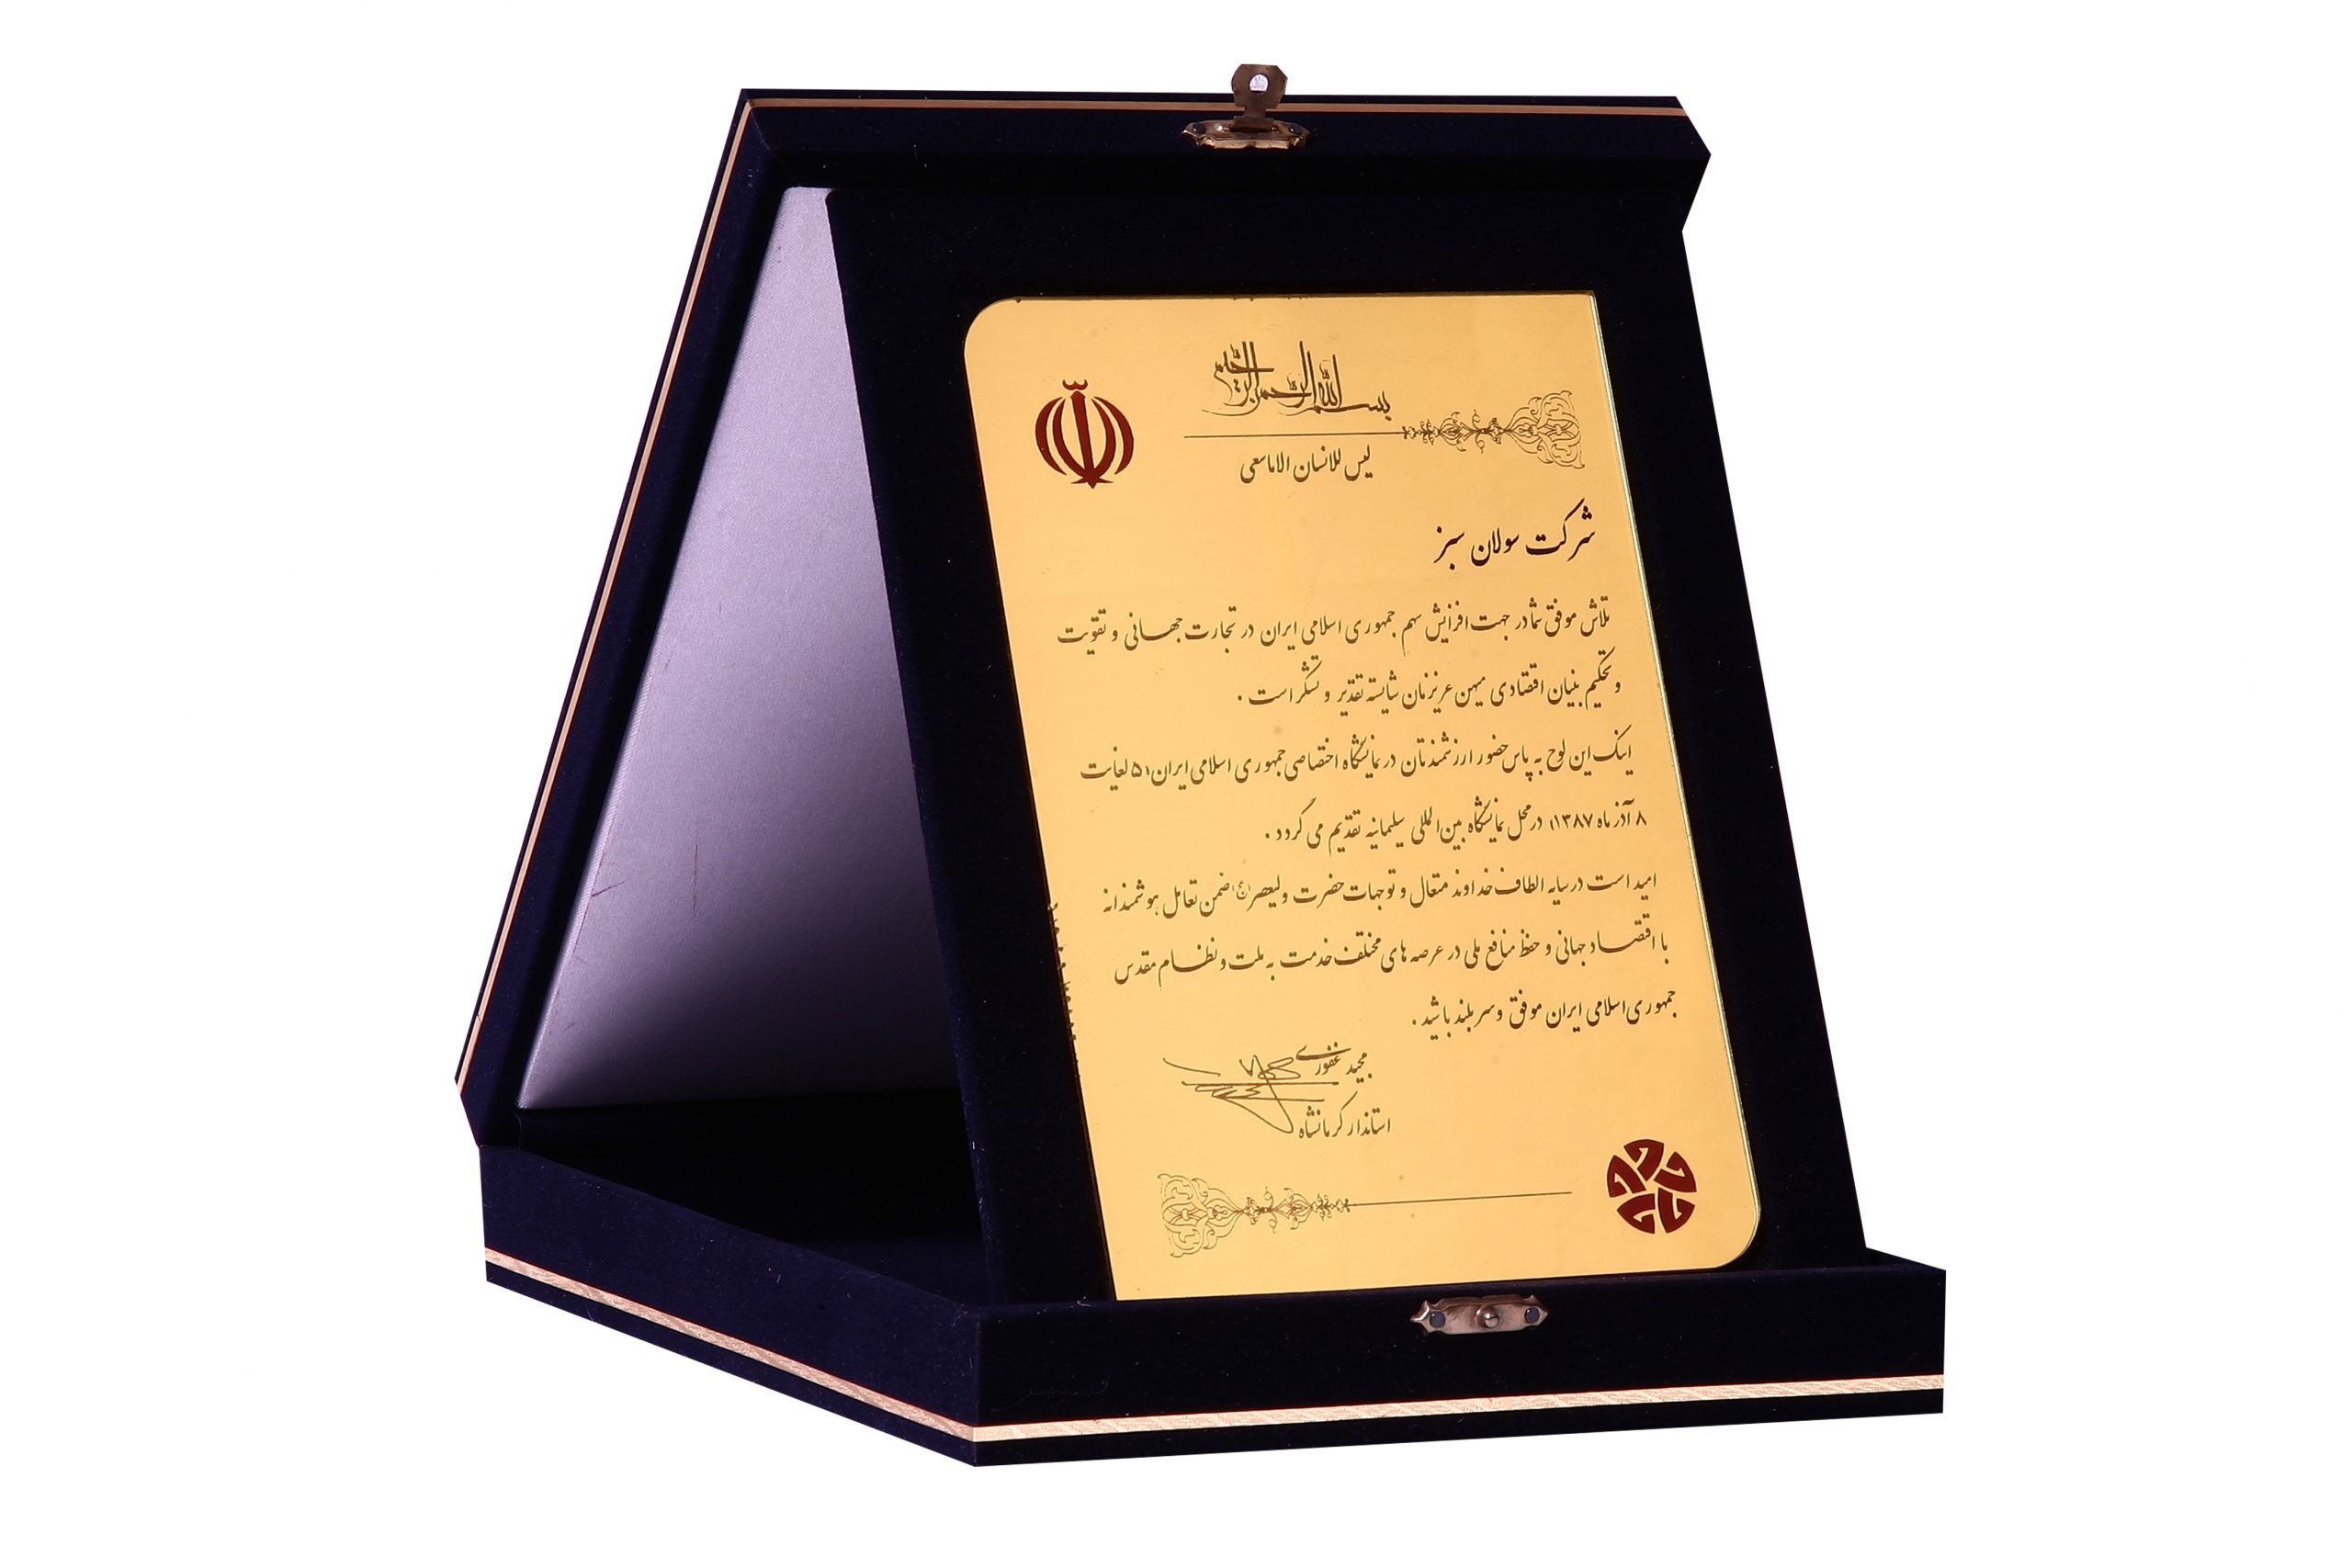 بسم الله الرحمن الرحیم
لیس للانسان الاماسعی
شرکت سولان سبز
تلاش موفق شما در جهت افزایش سهم جمهوری اسلامی ایران در تجارت جهانی و تقویت
و تحکیم بنیان اقتصادی میهن عزیزمان شایسته تقدیر و تشکر است .
اینک این لوح به پاس حضور ارزشمندتان در نمایشگاه اختصاصی جمهوری اسلامی ایران (۵ لغایت
۸ آذر ماه ۱۳۸۷) در محل نمایشگاه بین المللی سلیمانیه تقدیم می گردد .
امید است در سایه الطاف خداوند متعال و توجهات حضرت ولیعصر (عج) ضمن تعامل هوشمندانه
با اقتصاد جهانی و حفظ منافع ملی در عرصه های مختلف خدمت به ملت و نظام مقدس
جمهوری اسلامی ایران موفق و سربلند باشید .
مجید غفوری
استاندار کرمانشاه